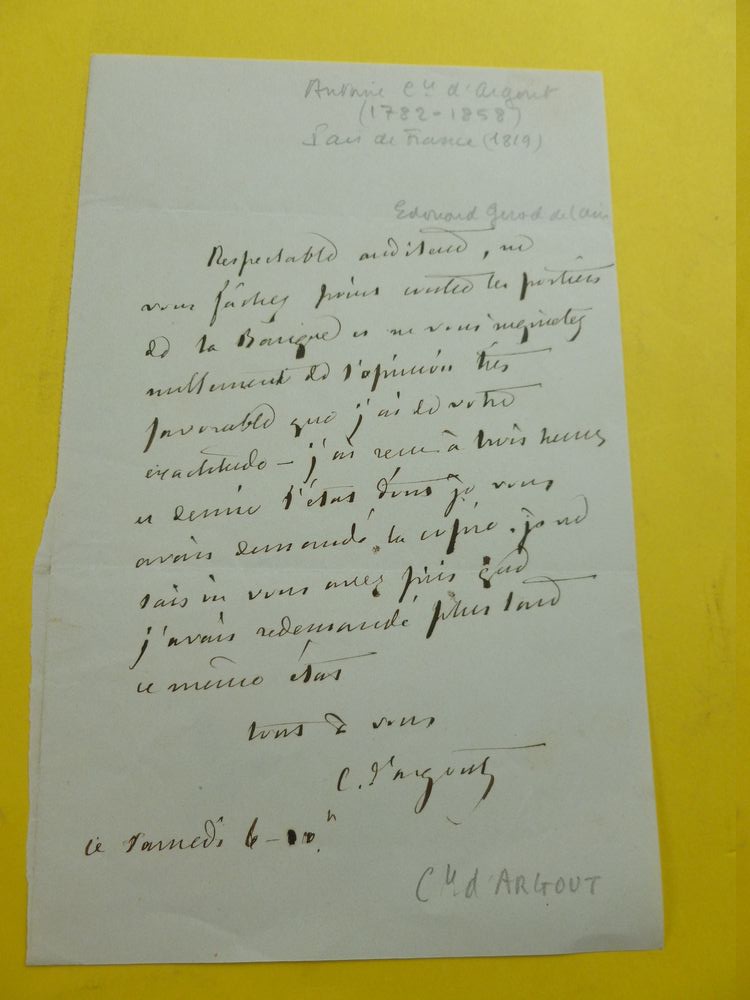 Antoine Cte d'Argout
(1782-1858)
Pair de France (1819)
Edouard Girod de l'Ain
Respectable auditeur, ne
vous fâchez point contre les portiers
de la Banque et ne vous inquietez
nullement de l'opinion très
favorable que j'ai de votre
exactitude - j'ai reçu à trois heures
et demie l'état dont je vous
avais demandé la copie. je ne
sais où vous avez pris que
j'avais redemandé plus tard
ce même état
tout à vous
C. d'argout
ce samedi 6 - h
Cte d'ARGOUT